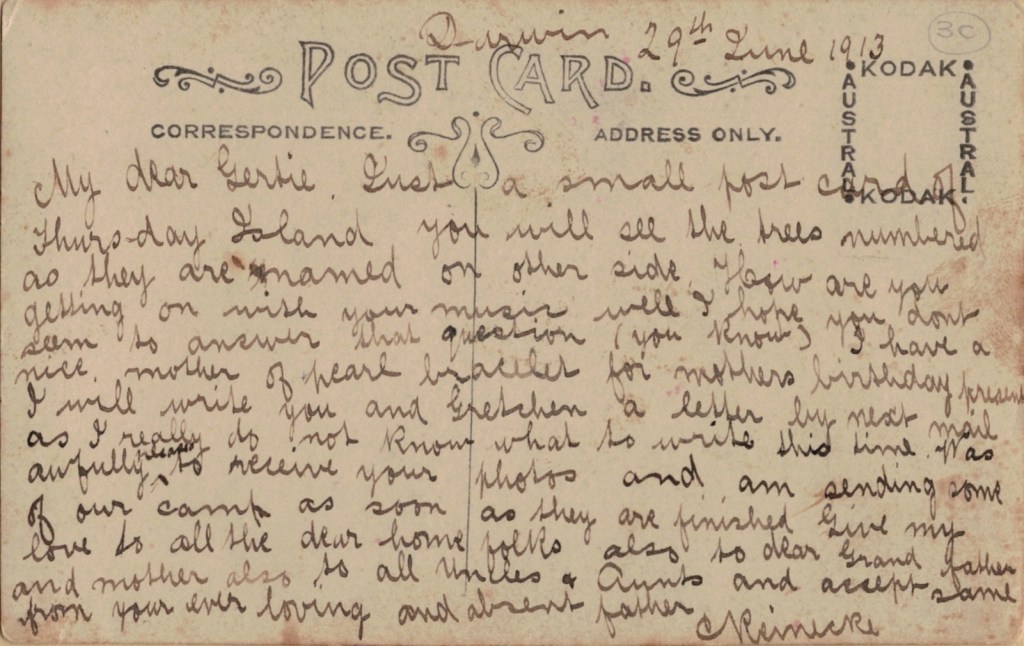 Darwin 29th June 1913
3C
POST CARD.
KODAK
AUSTRAL
AUSTRAL
KODAK
CORRESPONDENCE.
ADDRESS ONLY.
My dear Gertie. Just a small post card of
Thursday Island you will see the trees numbered
as they are named on other side. How are you
getting on with your music well I hope you dont
seem to answer that question (you know) I have a
nice mother of pearl bracelet for mothers birthday present
I will write you and Gretchen a letter by next mail
as I really do not know what to write this time. Was
awfully pleased to receive your photos and am sending some
of our camp as soon as they are finished Give my
love to all the dear home folks also to dear Grand father
and mother also to all Uncles & Aunts and accept same
from your ever loving and absent father
CReinecke